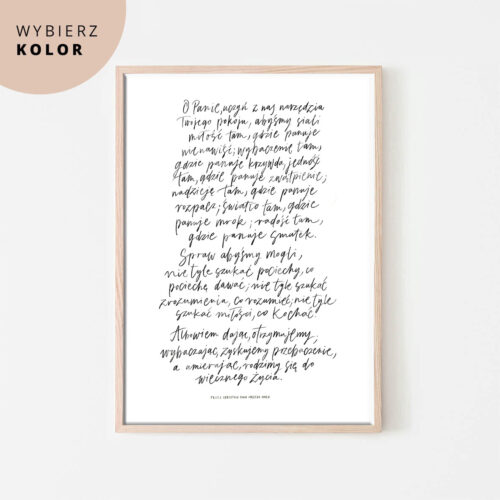 WYBIERZ
KOLOR
O Panie, uczyń z nas narzędzia
Twojego pokoju, abyśmy siali
miłość tam, gdzie panuje
nienawiść; wybaczenie tam,
gdzie panuje krzywda, jedność
tam, gdzie panuje zwątpienie;
nadzieję tam, gdzie panuje
rozpacz; światło tam, gdzie
panuje mrok; radość tam,
gdzie panuje smutek.
Spraw abyśmy mogli,
nie tyle szukać pociechy, co
pociechę dawać; nie tyle szukać
zrozumienia, co rozumieć; nie tyle
szukać miłości, co kochać
Albowiem dając, otrzymujemy,
wybaczając, zyskujemy przebaczenie,
a umierając, rodzimy się do
wiecznego życia.